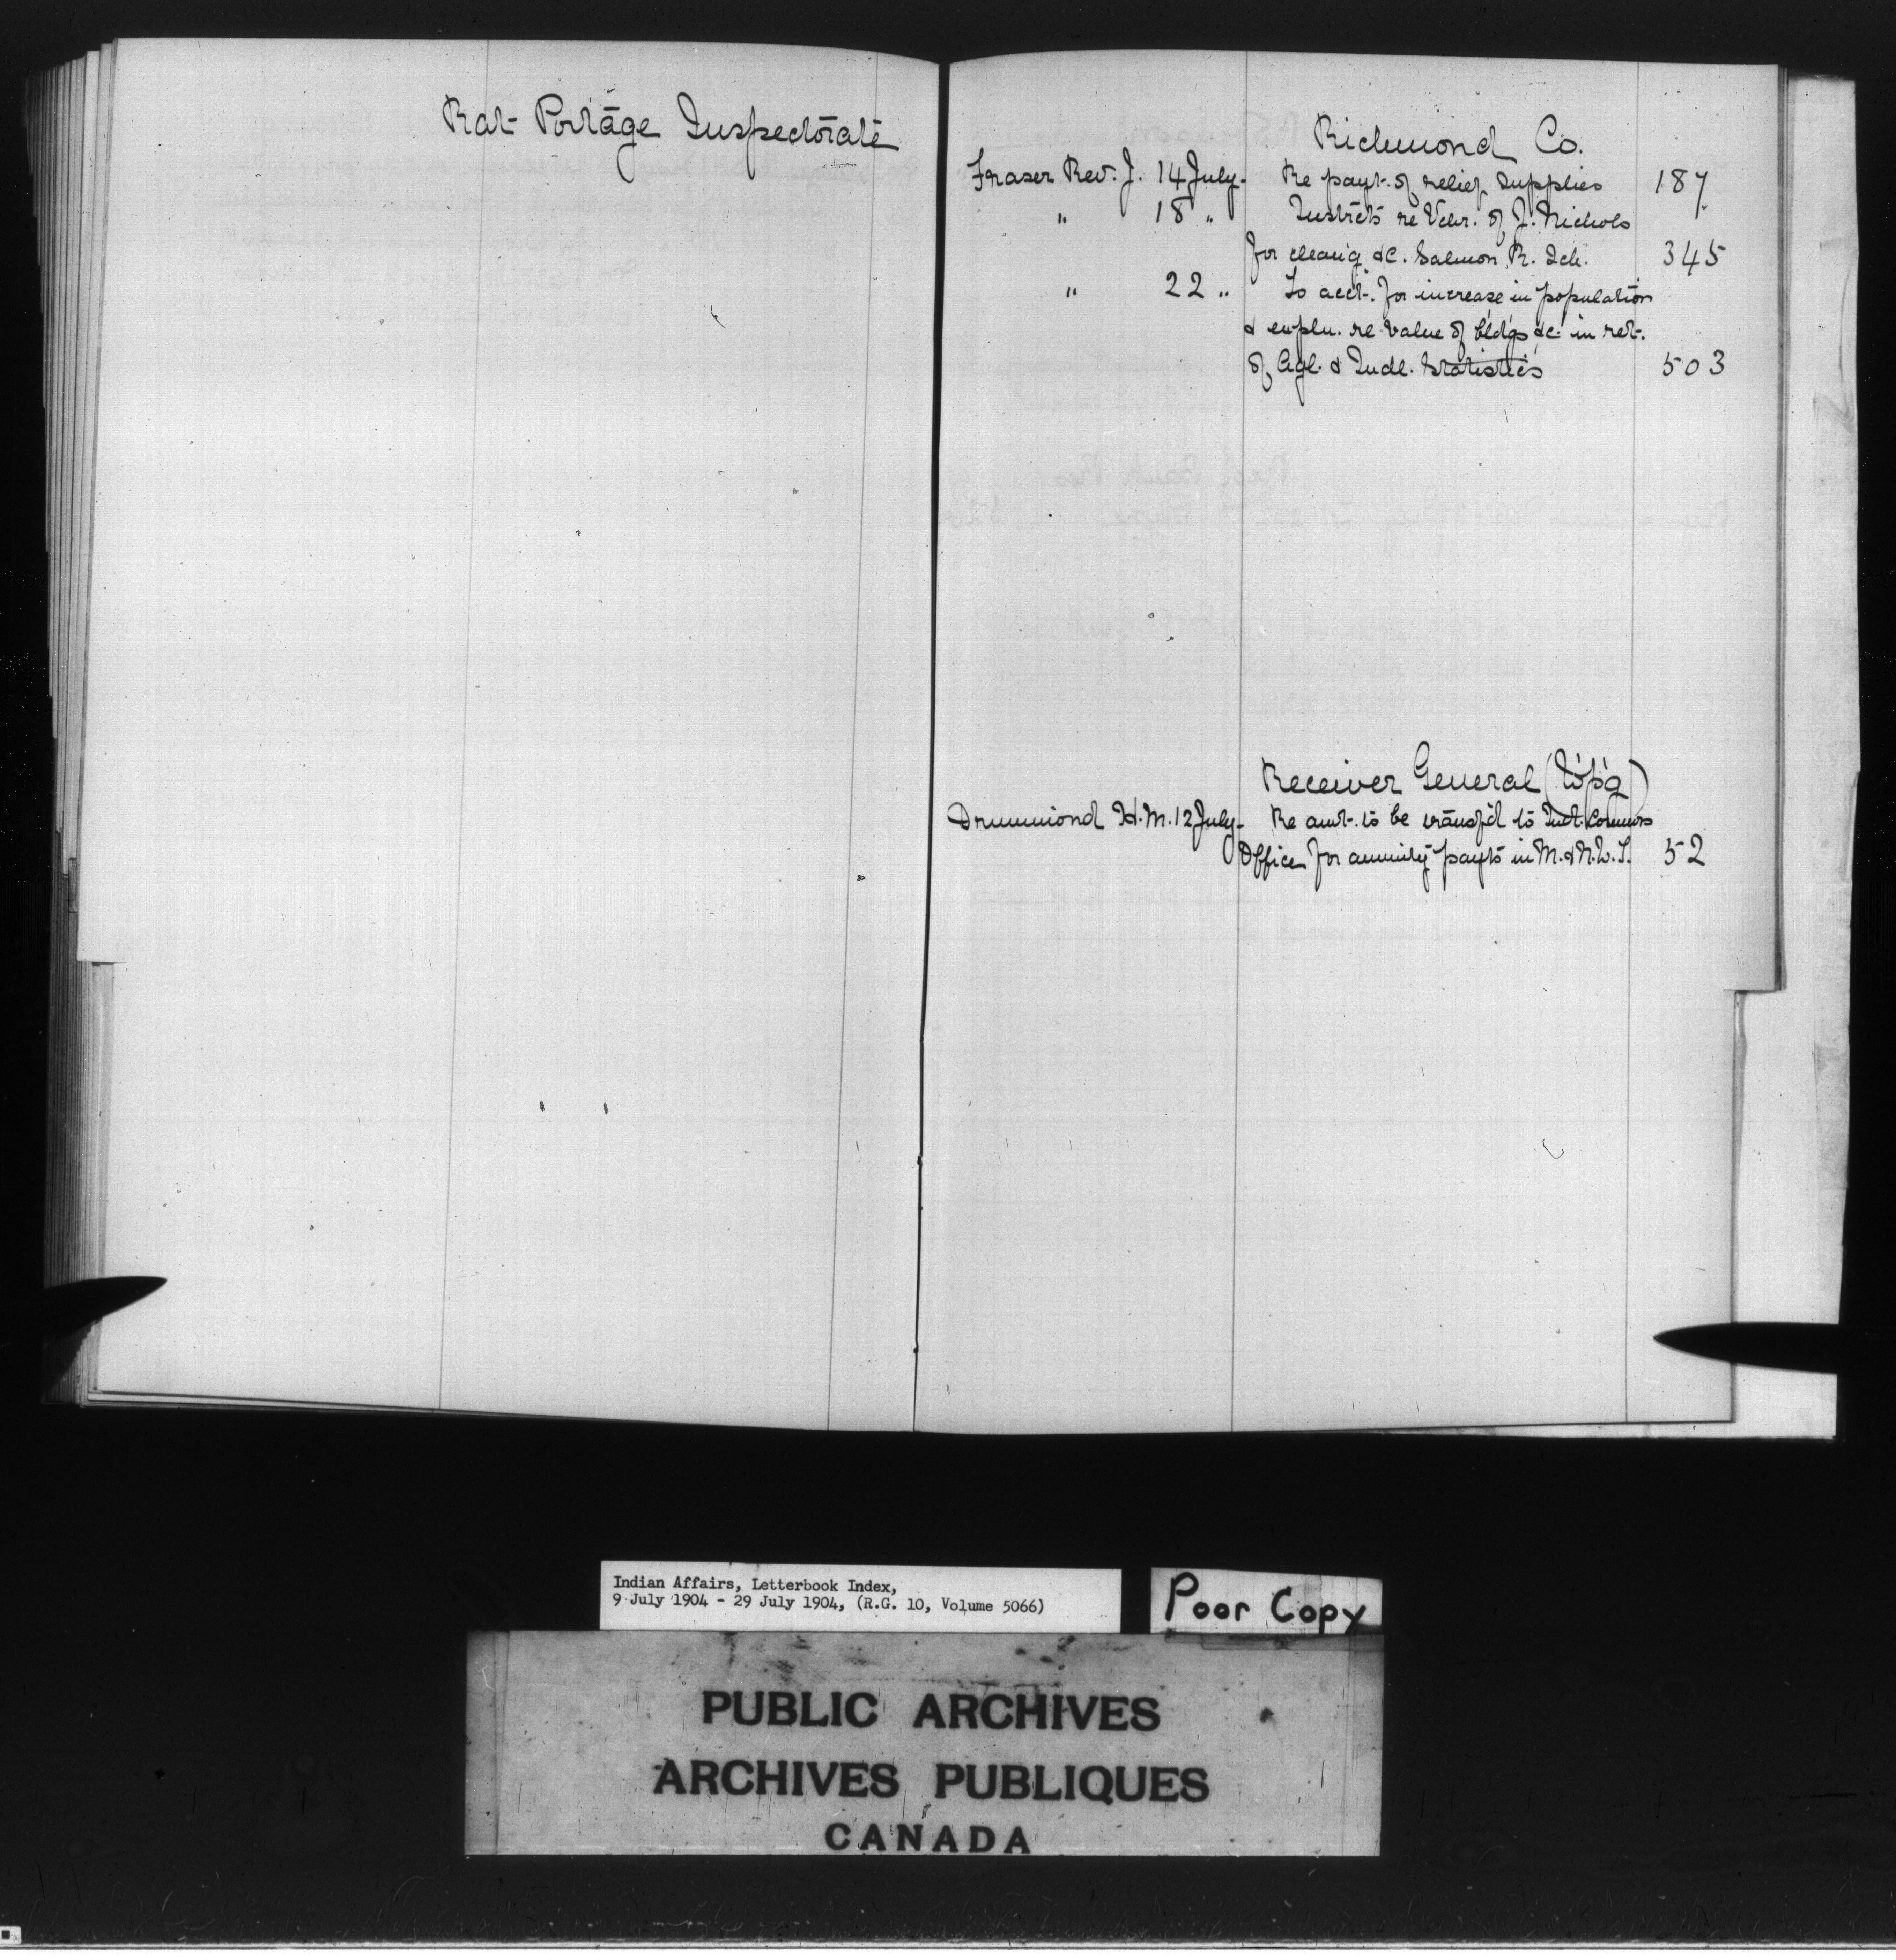 Rat Portage Inspectorate
Richmond Co.
Fraser Rev. J. 14 July - Re payt. of relief supplies 187
" 18 " Instrcts re Vchr. of J. Nichols
for cleang &c. Salmon R. Sch. 345
" 22 " To acct. for increase in population
& expln. re value of bldgs &c. in ret.
of Agl. & Indl. Statistics 503
Receiver General (Wpg)
Drummond H.M. 12 July - Re amt. to be transf'd to Ind. Commrs
Office for annuity payts in M. & N.W.T. 52
Indian Affairs, Letterbook Index,
9 July 1904 - 29 July 1904, (R.G. 10, Volume 5066)
Poor Copy
PUBLIC ARCHIVES
ARCHIVES PUBLIQUES
CANADA